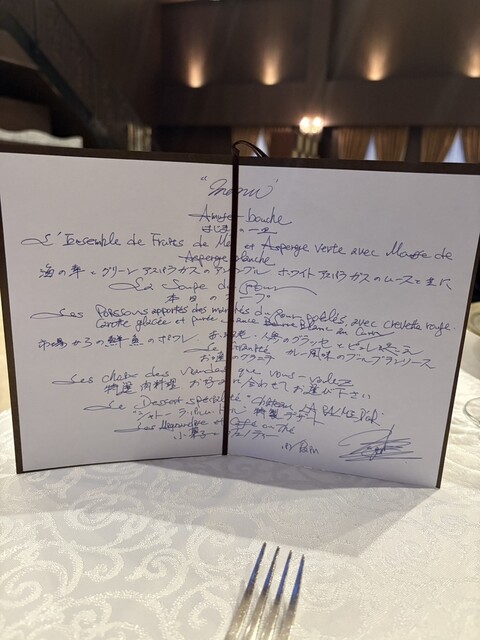 "menu"
Amuse-bouche
はじまりの一皿
L'Ensemble de Fruites de Mer et Asperge verte avec Mousse de
Asperge blanche
海の幸とグリーンアスパラガスのアンサンブル ホワイトアスパラガスのムースと共に
La Soupe du Jour
本日のスープ
Les Poissons apportés des marchés du jour poêlés, avec crevette rouge
carotte glacée et purée, sauce Beurre Blanc au Curry
市場からの鮮魚のポワレ 赤海老・人参のグラッセとピュレを添え
Le Granité カレー風味のブールブランソース
お口直しのグラニテ
Les choix des viandes que vous-voulez
特選肉料理 お好みに合わせてお選び下さい
Le Dessert spécialité "Château LA PALME D'OR"
"シャトーラ・パルムドール" 特製デザート
Les Mignardise et Café ou Thé
小菓子